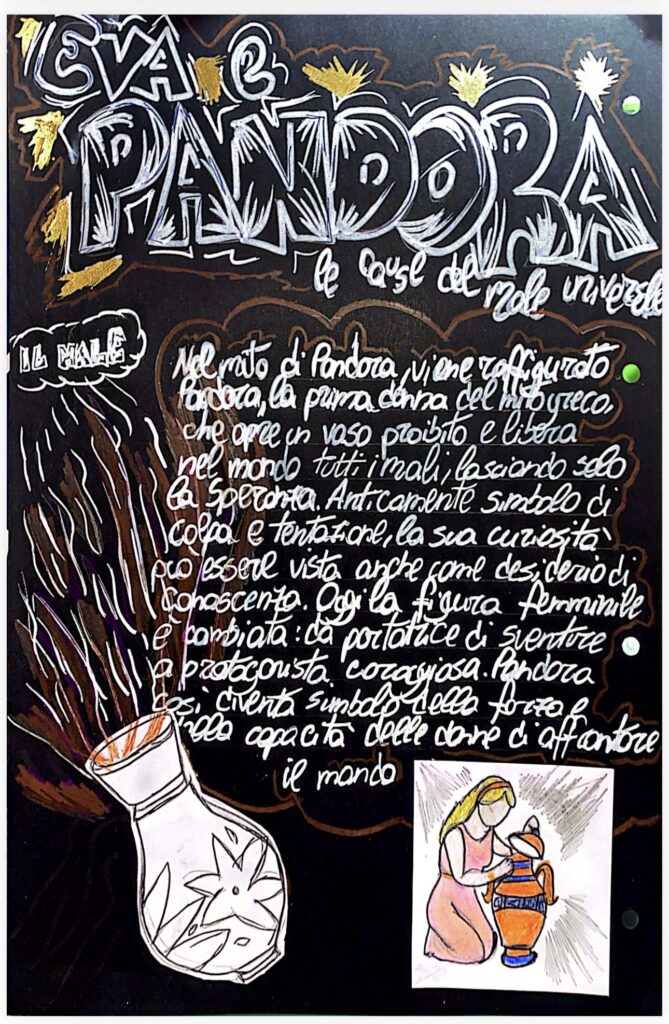 EVA e
PANDORA
le cause del male universale
IL MALE
Nel mito di Pandora, viene raffigurato
Pandora, la prima donna del mito greco,
che apre un vaso proibito e libera
nel mondo tutti i mali, lasciando solo
la Speranza. Anticamente simbolo di
colpa e tentazione, la sua curiosità
può essere vista anche come desiderio di
conoscenza. Oggi la figura femminile
è cambiata: da portatrice di sventure
a protagonista coraggiosa. Pandora
così diventa simbolo della forza e
della capacità delle donne di affrontare
il mondo